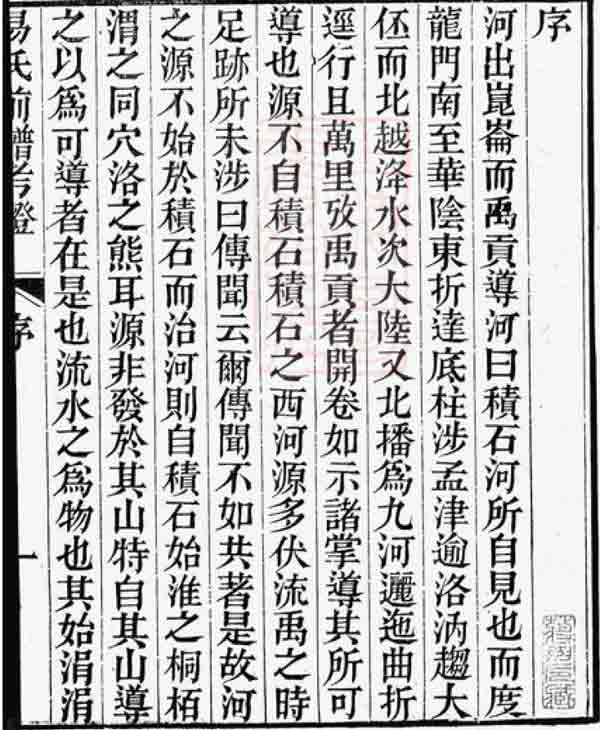 序
河出崑崙而禹貢導河曰積石河所自見也而度
龍門南至華陰東折達底柱涉孟津逾洛汭趨大
伾而北越洚水次大陸又北播爲九河邐迤曲折
逕行且萬里攷禹貢者開卷如示諸掌導其所可
導也源不自積石積石之西河源多伏流禹之時
足跡所未涉曰傳聞云爾傳聞不如共著是故河
之源不始於積石而治河則自積石始淮之桐栢
渭之同穴洛之熊耳源非發於其山特自其山導
之以爲可導者在是也流水之爲物也其始涓涓
易氏前譜考證 序 一